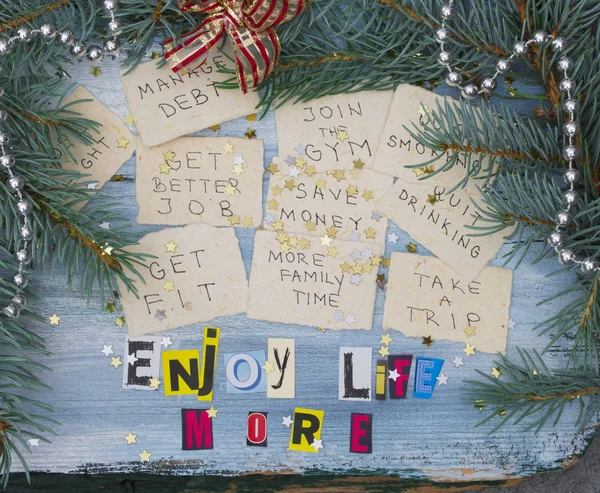 MANAGE
DEBT
GHT
JOIN
THE
GYM
SMOKING
GET
BETTER
JOB
SAVE
MONEY
QUIT
DRINKING
GET
FIT
MORE
FAMILY
TIME
TAKE
A
TRIP
ENJOY LIFE
MORE